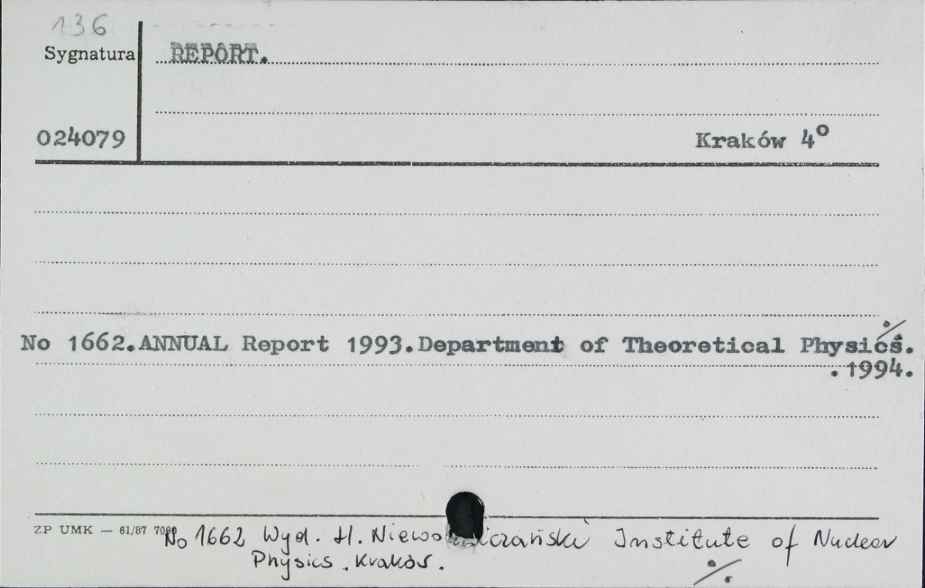 136
Sygnatura REPORT.
024079 Kraków 4º
No 1662.ANNUAL Report 1993.Department of Theoretical Physics.
.1994.
ZP UMK — 61/87
No 1662 Wyd. H. Institute of Nuclear
Physics. Kraków.